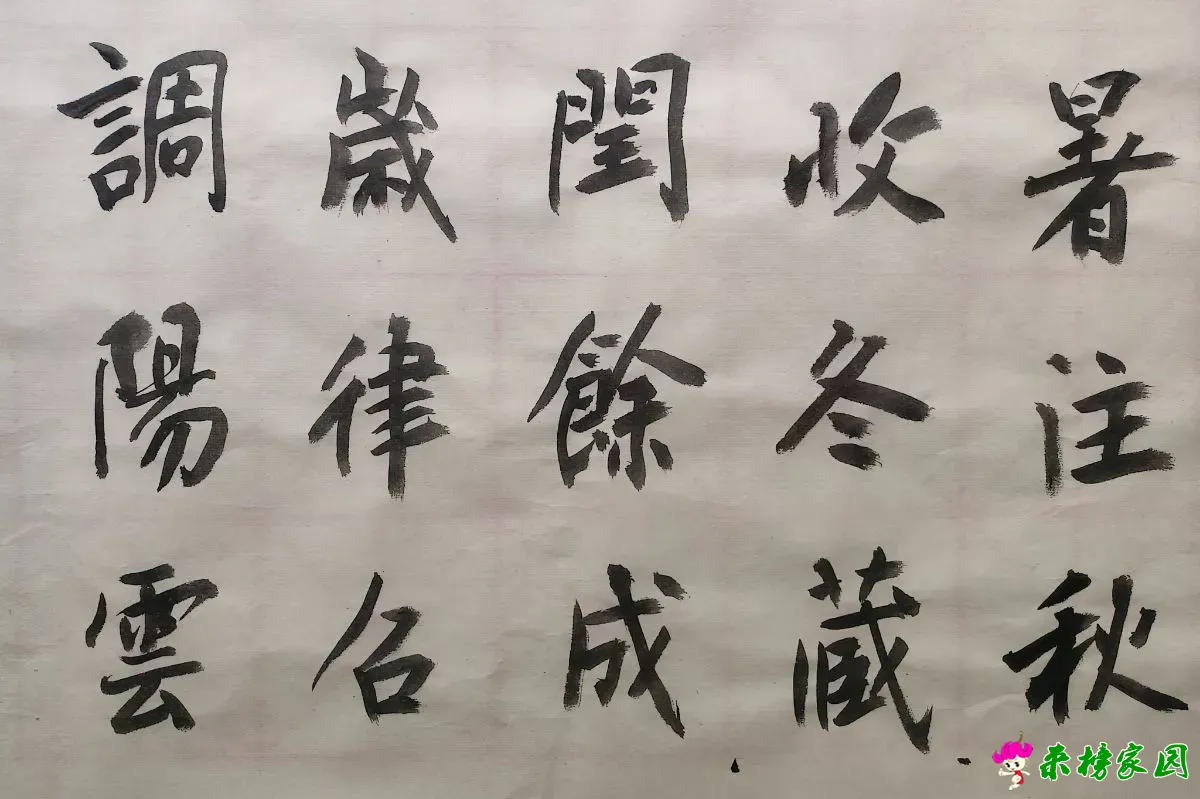 暑往秋
收冬藏
閏餘成
歲律召
調陽雲
来榜家园